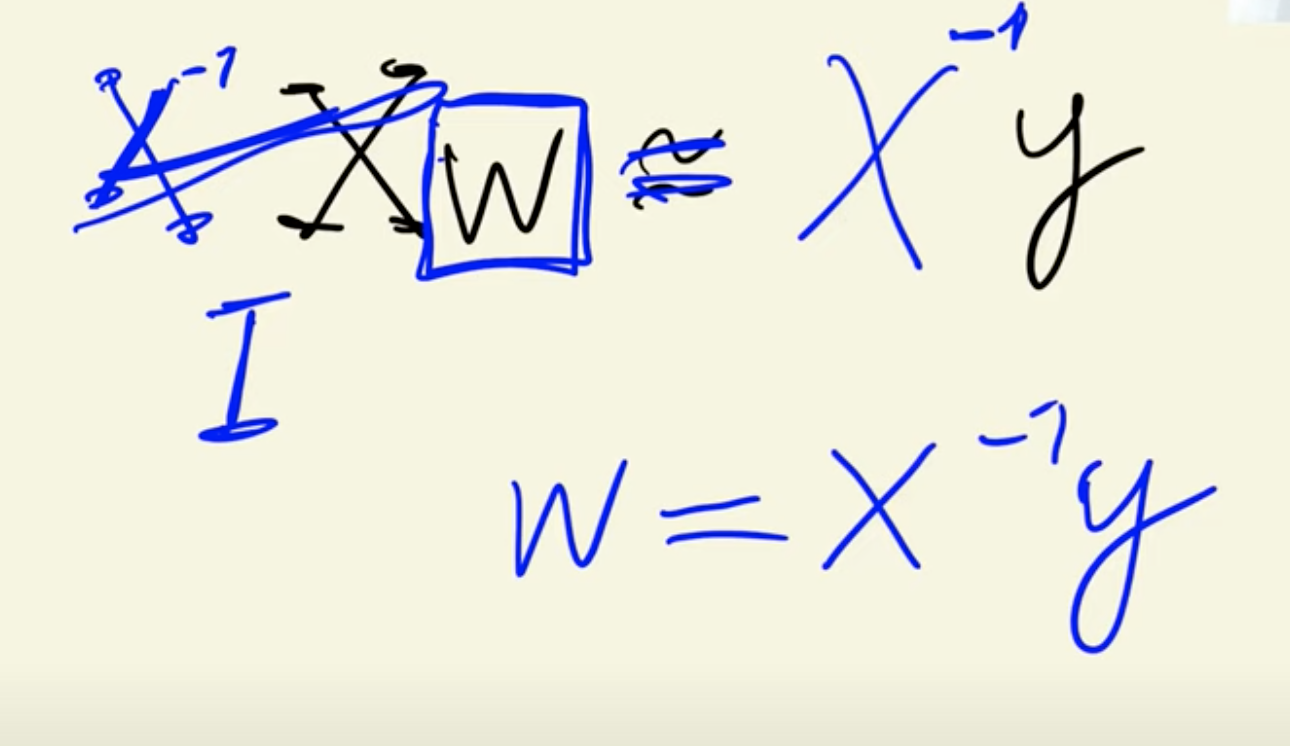 X⁻¹ X W = X⁻¹ y
I
W = X⁻¹ y